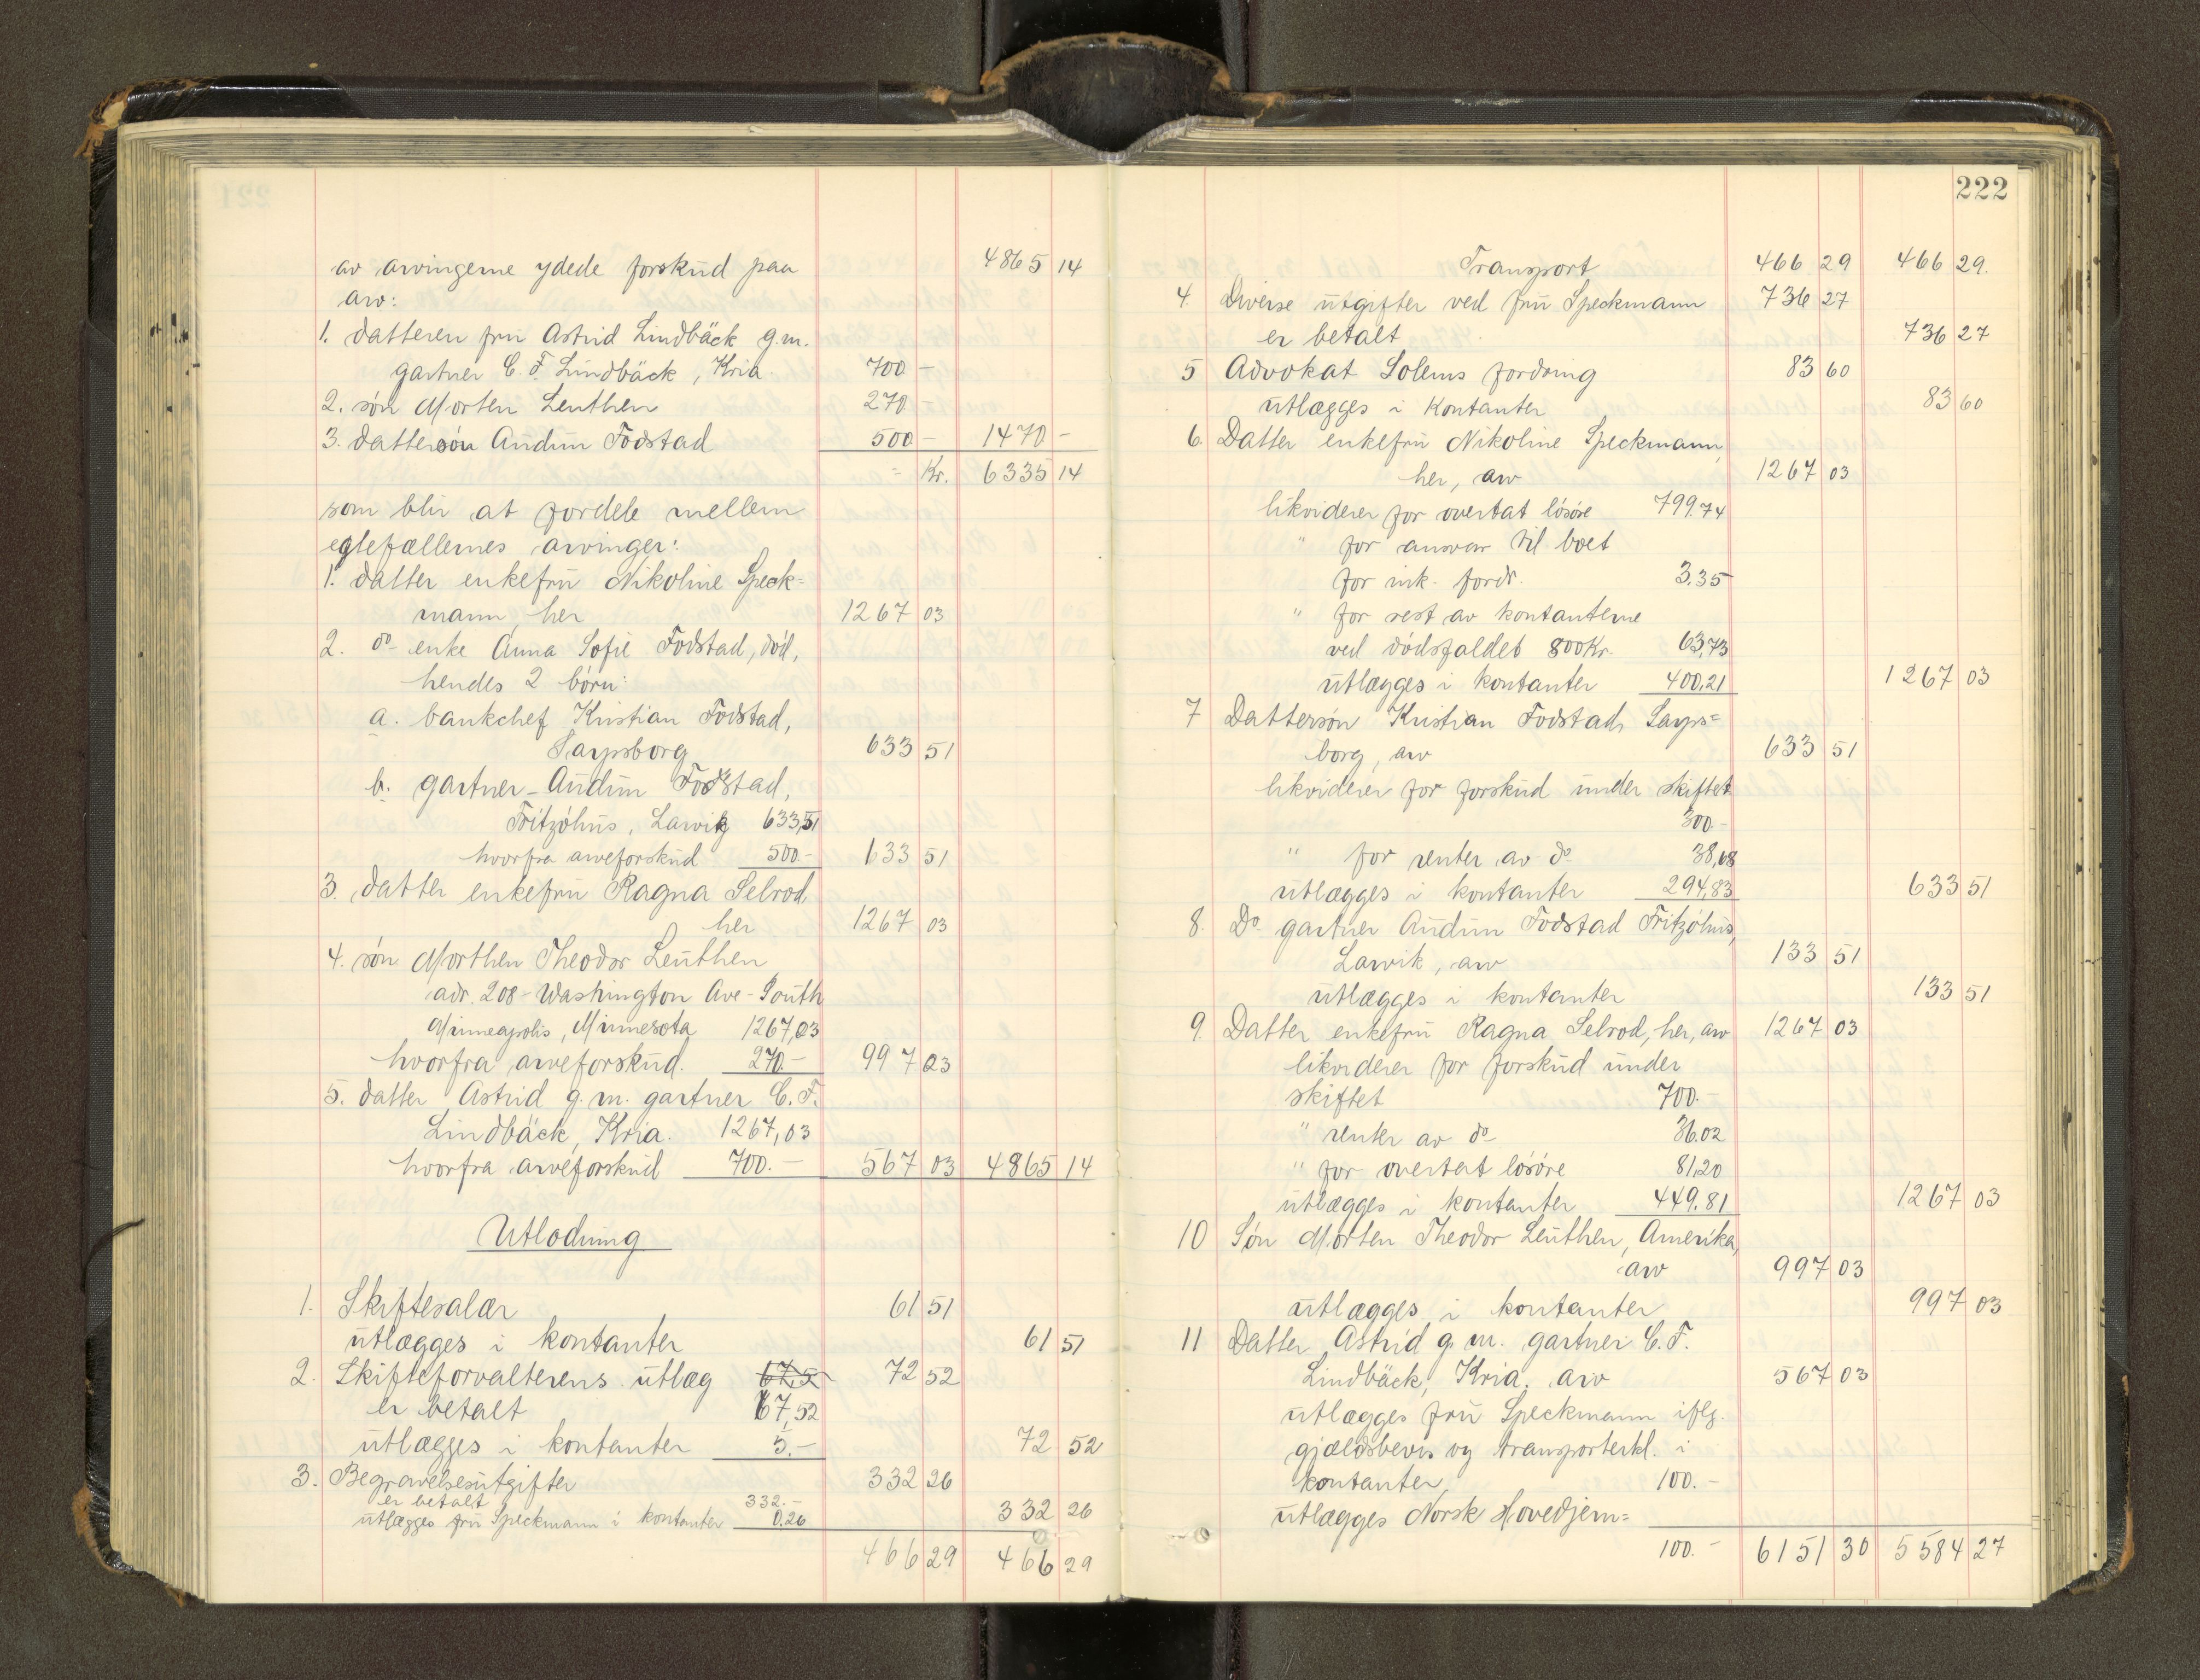 av arvingerne ydede forskud paa 4865 14
arv:
1. datteren fru Astrid Lindbäck g.m.
gartner C. F. Lindbäck, Kria. 700 -
2. søn Morten Leuthen 270 -
3. dattersøn Audun Fodstad 500 - 1470 -
Kr. 6335 14
som blir at fordele mellem
egtefællernes arvinger:
1. datter enkefru Nikoline Speck=
mann, her 1267 03
2. do enke Anna Sofie Fodstad, död,
hendes 2 børn:
a. bankchef Kristian Fodstad,
Sarpsborg 633 51
b. gartner Audun Fodstad,
Fritzøhus, Larvik 633,51
hvorfra arveforskud 500.- 133 51
3. datter enkefru Ragna Selrod
her 1267 03
4. søn Morthen Theodor Leuthen
adr. 208 - Washington Ave - South
Minneapolis, Minnesota 1267,03
hvorfra arveforskud. 270.- 997 03
5. datter Astrid g. m. gartner C. F.
Lindbäck, Kria. 1267,03
hvorfra arveforskud 700.- 567 03 4865 14
Utlodning
1. Skiftesalær 61 51
utlægges i kontanter 61 51
2. Skifteforvalterens utlæg 67,5 72 52
er betalt 67,52
utlægges i kontanter 5.- 72 52
3. Begravelsesutgifter 332 26
er betalt 332.-
utlægges fru Speckmann i kontanter 0.26 332 26
466 29 466 29
222
Transport 466 29 466 29.
4. Diverse utgifter ved fru Speckmann 736 27
er betalt 736 27
5 Advokat Solems fordring 83 60
utlægges i kontanter 83 60
6. Datter enkefru Nikoline Speckmann,
her, arv 1267 03
likviderer for overtat lösöre 799.74
" for ansvar til boet
for ink. fordr. 3.35
" for rest av kontanterne
ved dødsfaldet 800 Kr. 63,73
utlægges i kontanter 400,21 1267 03
7 Dattersøn Kristian Fodstad, Sarps=
borg, arv 633 51
likviderer for forskud under skiftet
300.-
" for renter av do 38,68
utlægges i kontanter 294,83 633 51
8. Do gartner Audun Fodstad Fritzøhus,
Larvik, arv 133 51
utlægges i kontanter 133 51
9. Datter enkefru Ragna Selrod, her, arv 1267 03
likviderer for forskud under
skiftet 700.-
" renter av do 36.02
" for overtat lösöre 81,20
utlægges i kontanter 449.81 1267 03
10 Søn Morten Theodor Leuthen, Amerika,
arv 997 03
utlægges i kontanter 997 03
11 Datter Astrid g. m. gartner C. F.
Lindbäck, Kria. arv 567 03
utlægges fru Speckmann iflg.
gjældsbevis og transporterkl. i
kontanter 100.-
utlægges Norsk Hovedjern=
100.- 6151 30 5584 27